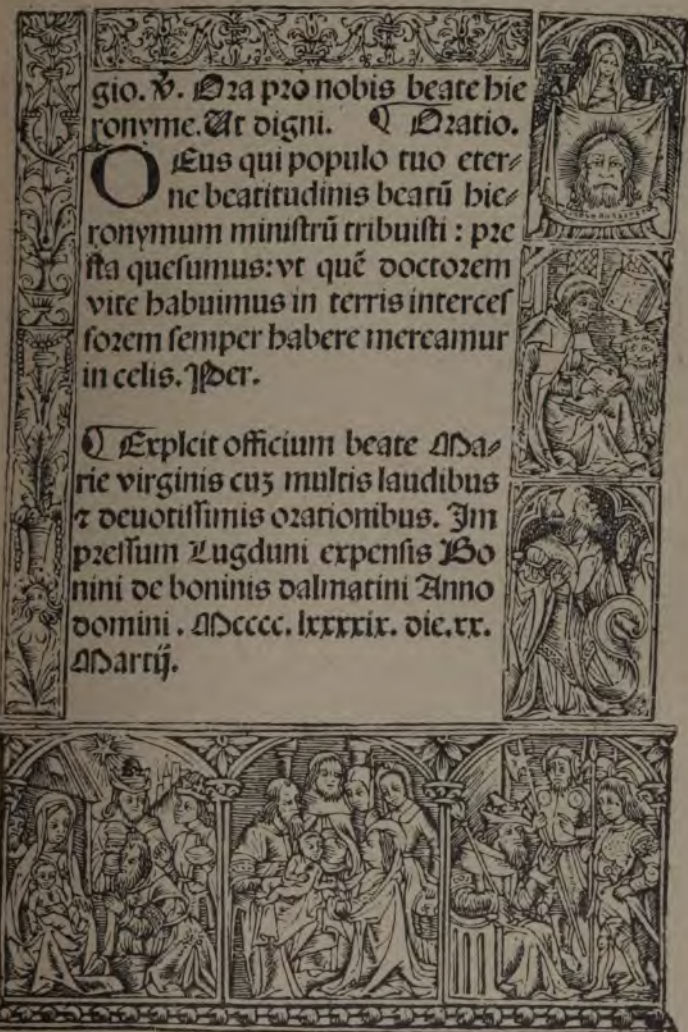 gio. ℣. Ora pro nobis beate hie
ronyme. Ut digni. ¶ Oratio.
DEus qui populo tuo eter⸗
ne beatitudinis beatū hie⸗
ronymum ministrū tribuisti : pre
sta quesumus: vt quē doctorem
vite habuimus in terris interces
sorem semper habere mereamur
in celis. Per.
¶ Explcit officium beate Ma⸗
rie virginis cuʒ multis laudibus
⁊ deuotissimis orationibus. Im
pressum Lugduni expensis Bo
nini de boninis dalmatini Anno
domini . Mcccc. lxxxxix. die. xx.
Martij.